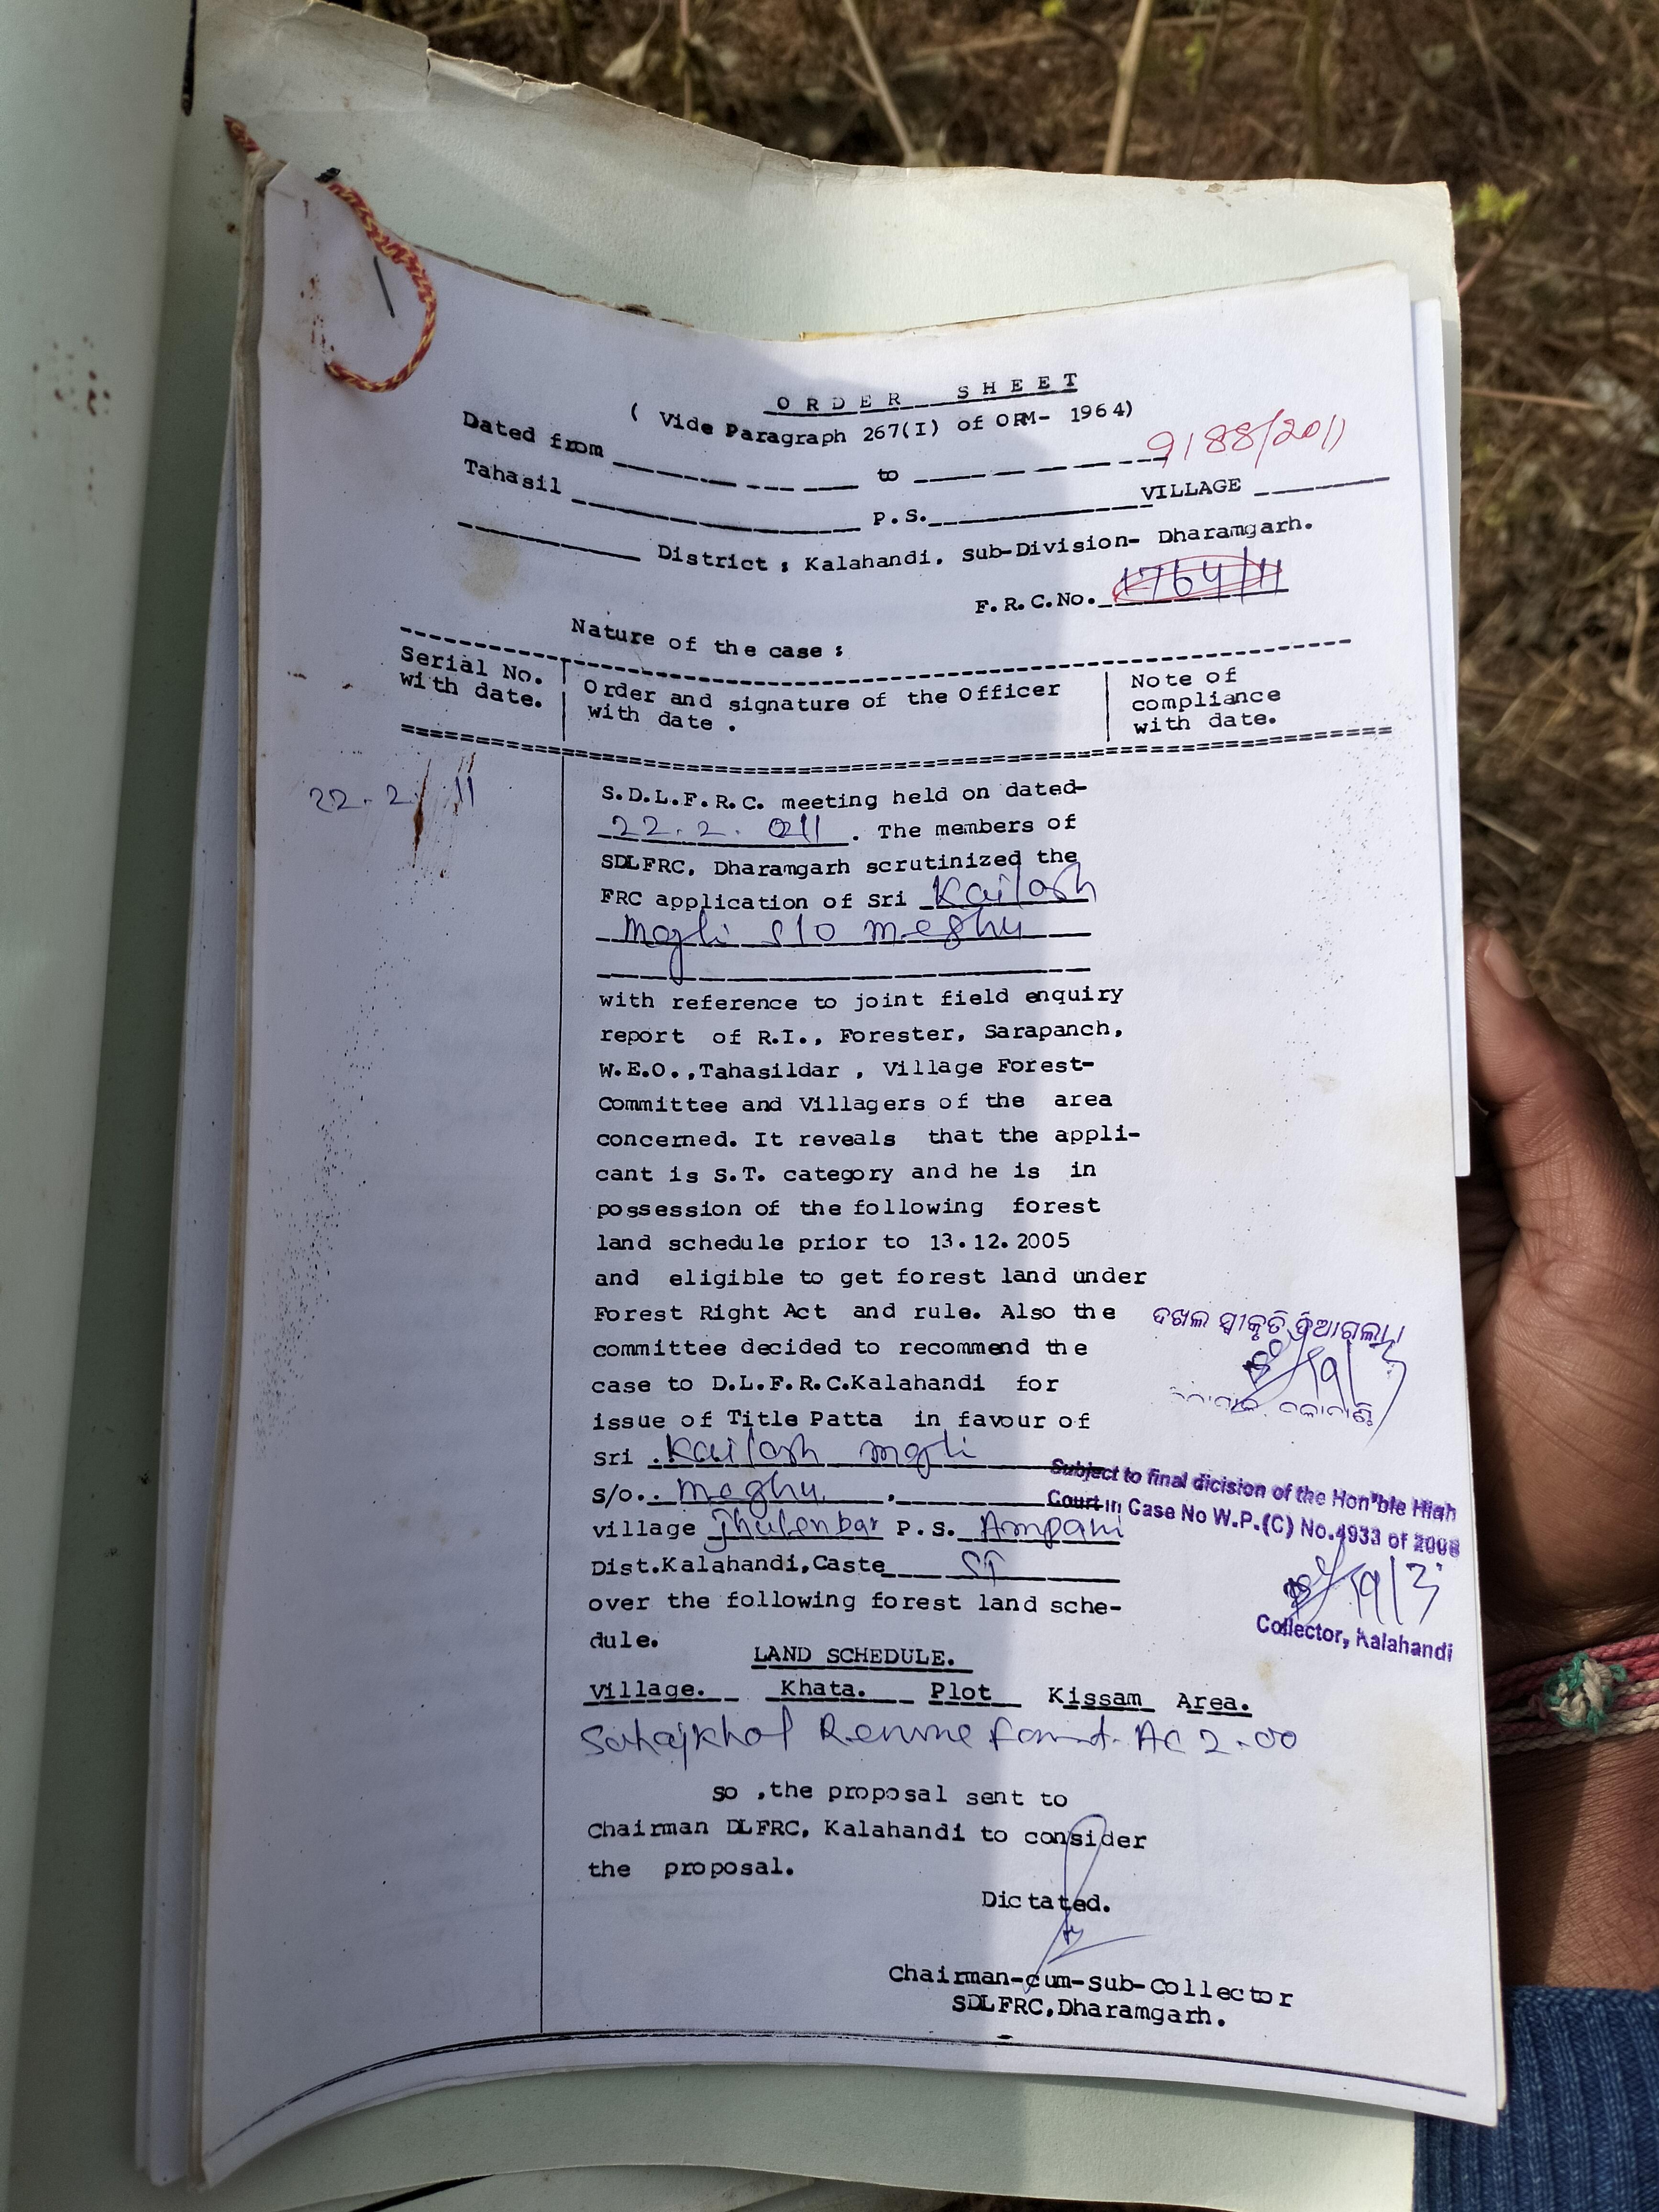 ORDER SHEET
( Vide Paragraph 267(I) of ORM- 1964)
9188/2011
Dated from to
Tahasil P.S. VILLAGE
District : Kalahandi, Sub-Division- Dharamgarh.
F.R.C.No. 1764/11
Nature of the case :
Serial No. with date.
Order and signature of the Officer with date .
Note of compliance with date.
22.2.11
S.D.L.F.R.C. meeting held on dated-
22.2.011. The members of
SDLFRC, Dharamgarh scrutinized the
FRC application of Sri Kailash
Majhi S/O Meghu
with reference to joint field enquiry
report of R.I., Forester, Sarapanch,
W.E.O.,Tahasildar , Village Forest-
Committee and Villagers of the area
concerned. It reveals that the appli-
cant is S.T. category and he is in
possession of the following forest
land schedule prior to 13.12.2005
and eligible to get forest land under
Forest Right Act and rule. Also the
committee decided to recommend the
case to D.L.F.R.C.Kalahandi for
issue of Title Patta in favour of
Sri Kailash Majhi
S/o.. Meghu,
village Jhulenbar P.S. Ampani
Dist.Kalahandi,Caste ST
over the following forest land sche-
dule.
ଦଖଲ ସ୍ୱୀକୃତି ଦିଆଗଲା।
19/3
Subject to final dicision of the Hon"ble High
Court in Case No W.P.(C) No.4933 of 2008
19/3
Collector, Kalahandi
LAND SCHEDULE.
Village. Khata. Plot Kissam Area.
Ac 2.00
so ,the proposal sent to
Chairman DLFRC, Kalahandi to consider
the proposal.
Dictated.
Chairman-cum-Sub-Collector
SDLFRC,Dharamgarh.